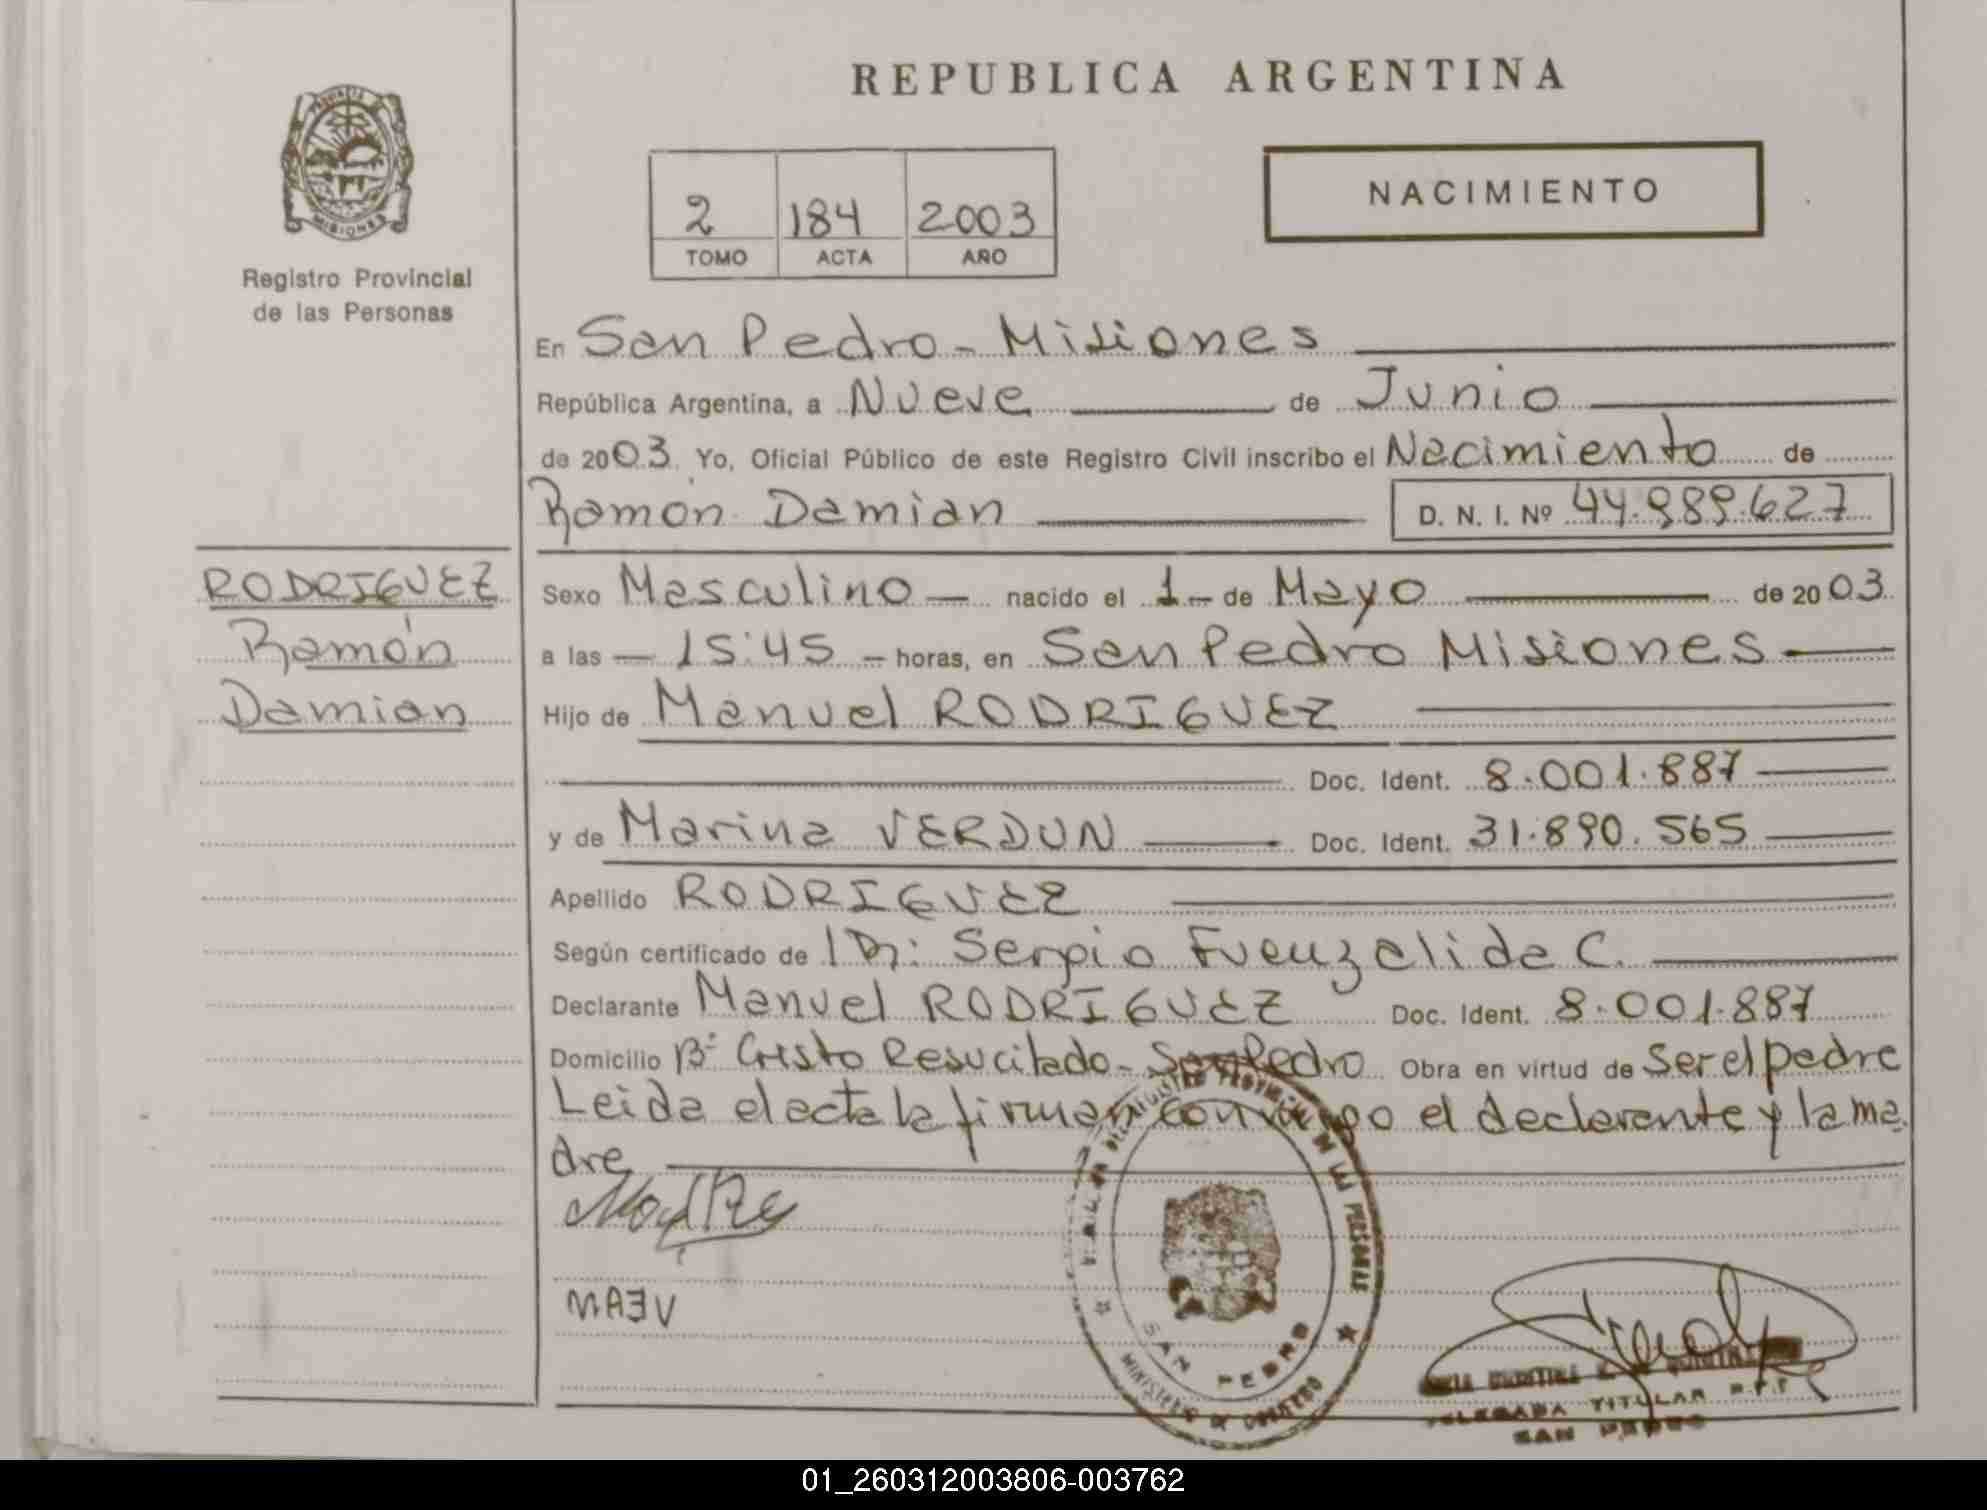 REPUBLICA ARGENTINA
PROVINCIA DE
MISIONES
Registro Provincial
de las Personas
2 184 2003
TOMO ACTA AÑO
NACIMIENTO
En San Pedro - Misiones
República Argentina, a Nueve de Junio
de 2003. Yo, Oficial Público de este Registro Civil inscribo el Nacimiento de
Ramón Damian D. N. I. Nº 44.989.627
RODRIGUEZ
Ramón
Damian
Sexo Masculino nacido el 1 - de Mayo de 2003.
a las - 15:45 - horas, en San Pedro Misiones
Hijo de Manuel RODRIGUEZ
Doc. Ident. 8.001.887
y de Marina VERDUN Doc. Ident. 31.890.565
Apellido RODRIGUEZ
Según certificado de Dr: Sergio Fuenzalida C.
Declarante Manuel RODRIGUEZ Doc. Ident. 8.001.887
Domicilio Bº Cristo Resucitado - San Pedro Obra en virtud de Ser el padre
Leida el acta la firman conmigo el declarante y la ma
dre
MAEV
REGISTRO PROVINCIAL DE LAS PERSONAS
SAN PEDRO
MINISTERIO DE GOBIERNO
TITULAR
SAN PEDRO
01_260312003806-003762